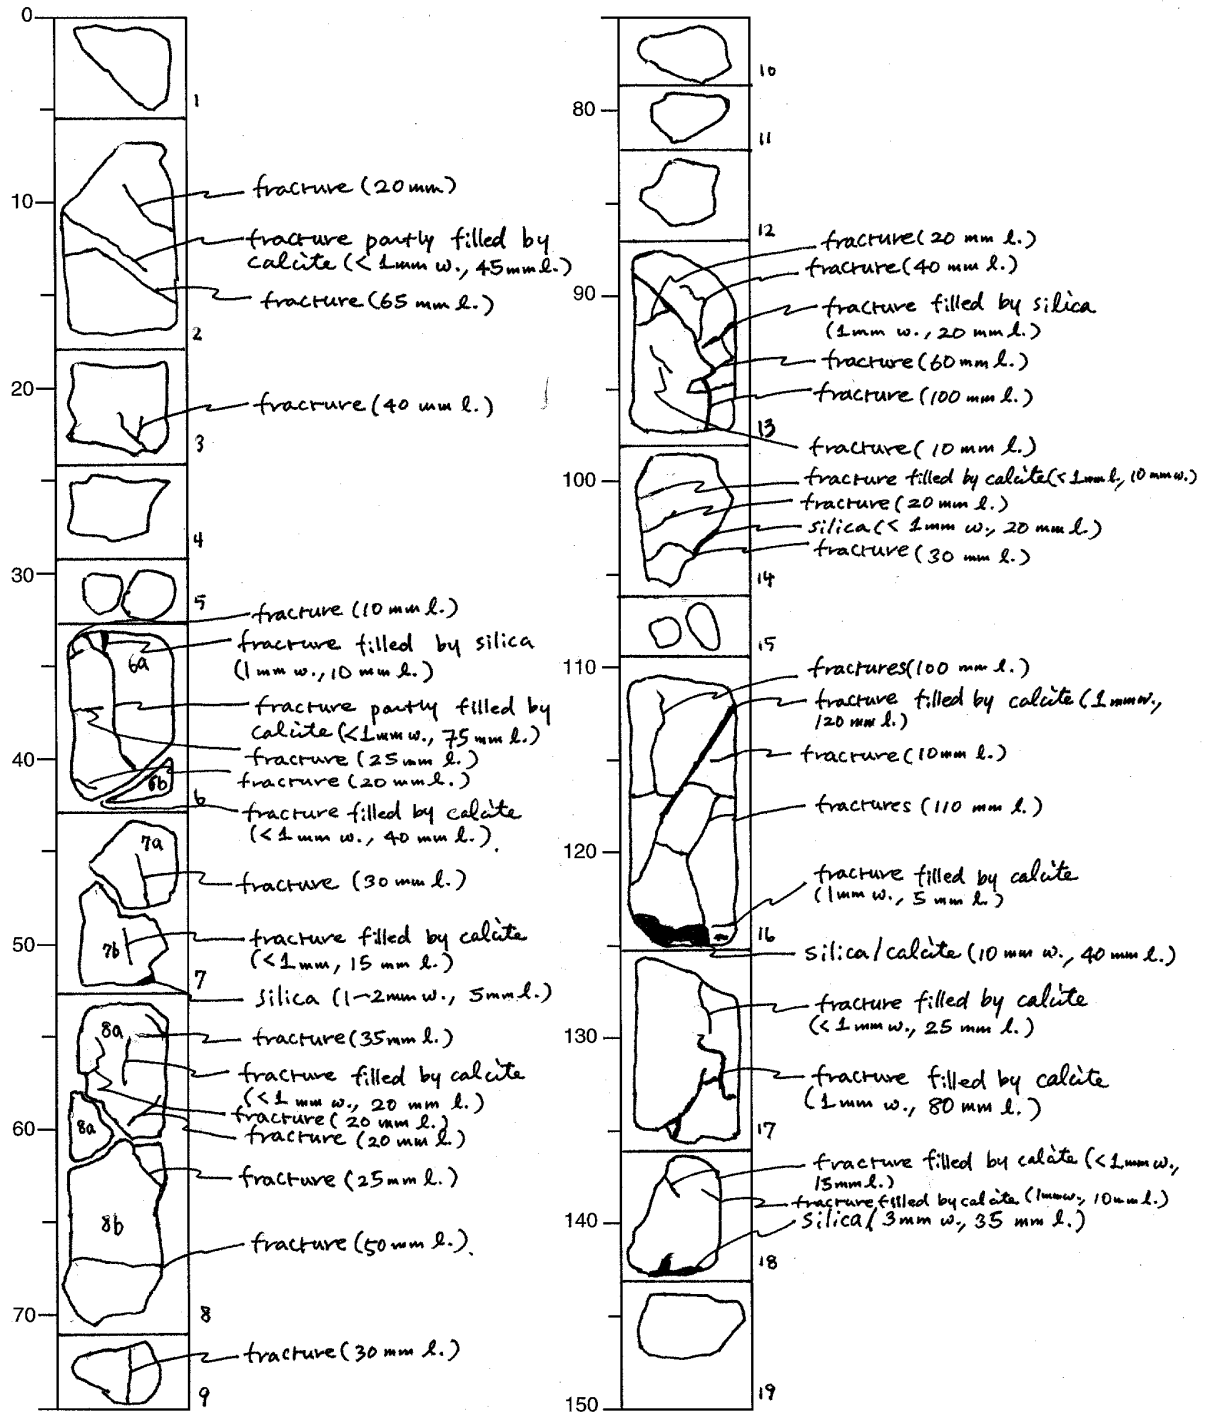 0
1
fracture (20 mm)
10
fracture partly filled by
calcite (< 1mm w., 45mm l.)
fracture (65 mm l.)
2
20
fracture (40 mm l.)
3
4
30
5
fracture (10 mm l.)
6a
fracture filled by silica
(1mm w., 10 mm l.)
fracture partly filled by
calcite (<1mm w., 75 mm l.)
fracture (25 mm l.)
40
6b
fracture (20 mm l.)
6
fracture filled by calcite
(<1 mm w., 40 mm l.).
7a
fracture (30 mm l.)
50
7b
fracture filled by calcite
(<1mm, 15 mm l.)
7
silica (1-2mm w., 5mm l.)
8a
fracture (35mm l.)
fracture filled by calcite
(<1 mm w., 20 mm l.)
fracture (20 mm l.)
60
8a
fracture (20 mm l.)
fracture (25mm l.)
8b
fracture (50 mm l.).
70
8
fracture (30 mm l.)
9
10
80
11
12
fracture (20 mm l.)
fracture (40 mm l.)
90
fracture filled by silica
(1mm w., 20 mm l.)
fracture (60mm l.)
fracture (100 mm l.)
13
fracture (10 mm l.)
100
fracture filled by calcite (<1mm l., 10 mm w.)
fracture (20 mm l.)
silica (< 1mm w., 20 mm l.)
fracture (30 mm l.)
14
15
110
fractures (100 mm l.)
fracture filled by calcite (1mm w.,
120 mm l.)
fracture (10mm l.)
fractures (110 mm l.)
120
fracture filled by calcite
(1mm w., 5 mm l.)
16
silica/calcite (10 mm w., 40 mm l.)
fracture filled by calcite
(<1 mm w., 25 mm l.)
130
fracture filled by calcite
(1mm w., 80 mm l.)
17
fracture filled by calcite (<1mm w.,
15mm l.)
fracture filled by calcite (1mm w., 10mm l.)
140
silica (3mm w., 35 mm l.)
18
19
150